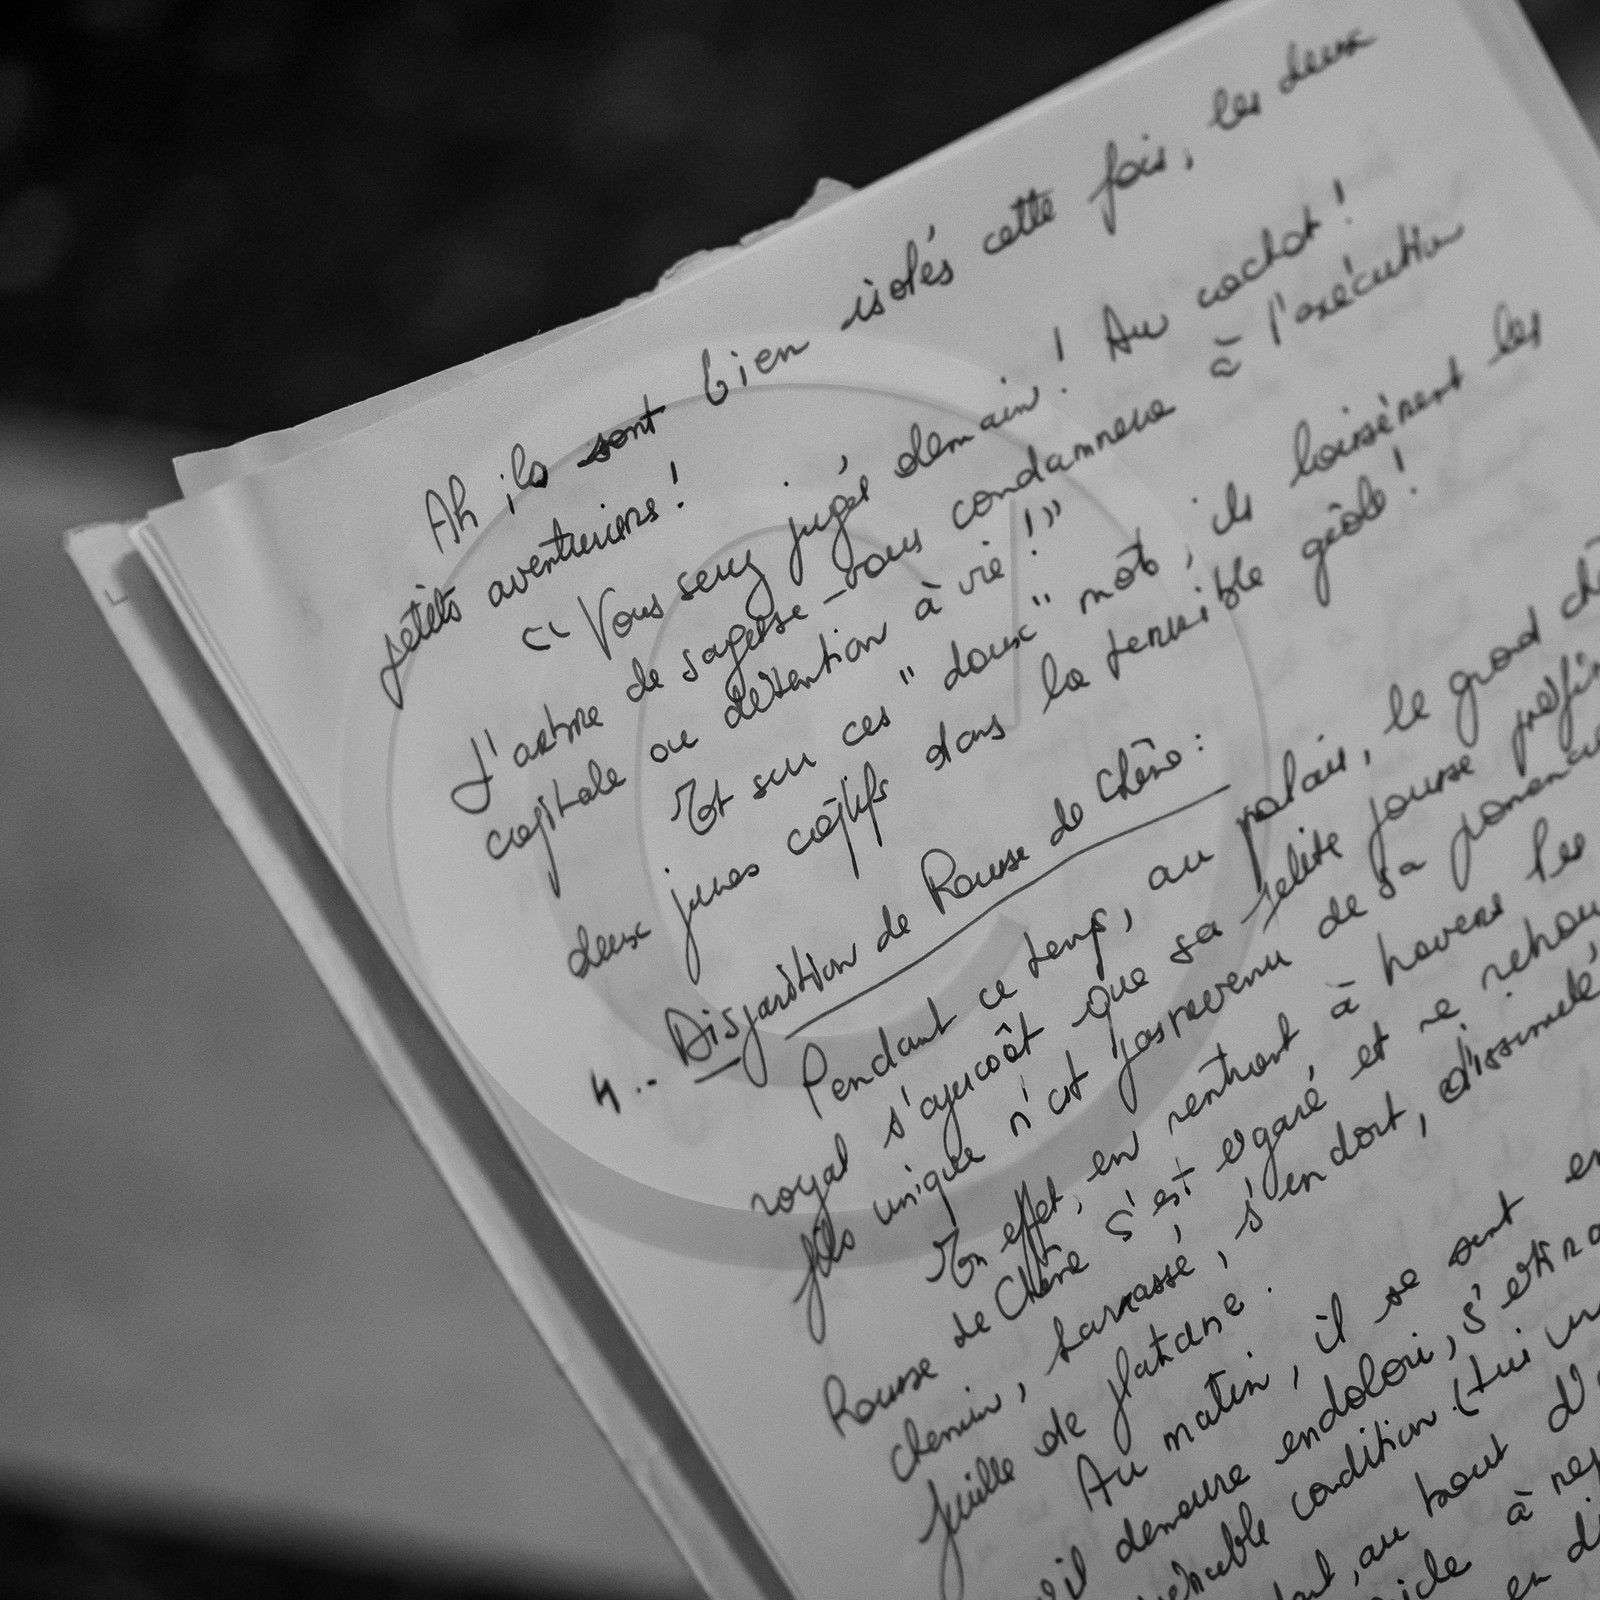 Ah ils sont bien isolés cette fois, les deux
petits aventuriers !
« Vous serez jugés demain ! Au cachot !
L'arbre de sagesse vous condamnera à l'exécution
capitale ou détention à vie ! »
Et sur ces " doux " mots, ils laissèrent les
deux jeunes captifs dans la terrible geôle !
4.. Disparition de Rousse de Chêne :
Pendant ce temps, au palais, le grand
royal s'aperçoît que sa petite pousse
fils unique n'est pas revenu de sa
En effet, en rentrant à travers les
Rousse de Chêne s'est égaré et ne
chemin, harrassé, s'endort, dissimulé
feuille de platane.
Au matin, il se sent
il demeure endolori, s'étira
condition (lui
au bout d'
à
en